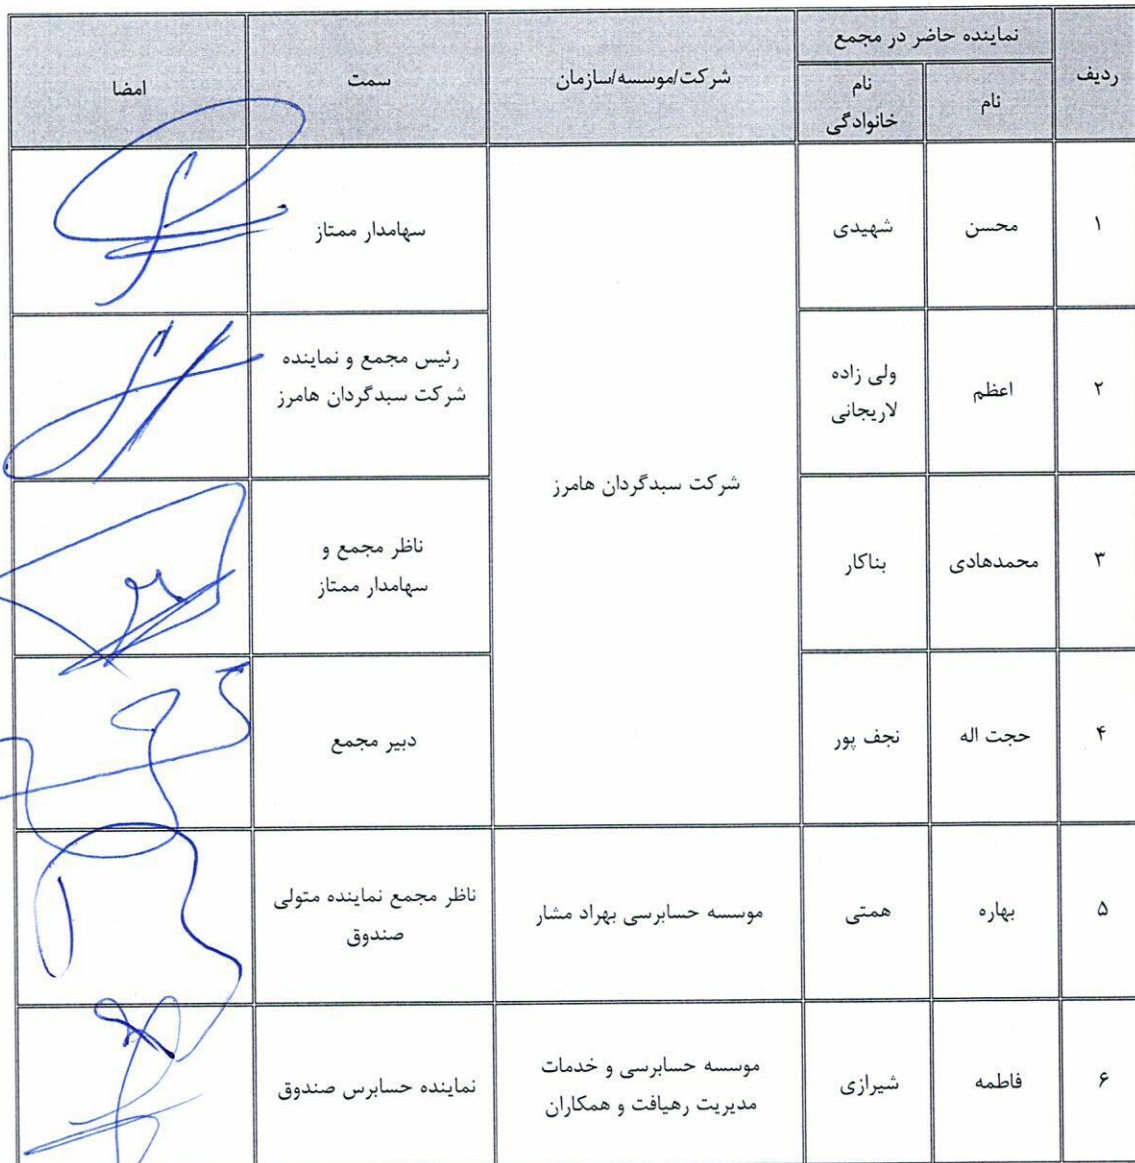 ردیف
نماینده حاضر در مجمع
نام
نام
خانوادگی
شرکت/موسسه/سازمان
سمت
امضا
۱
محسن
شهیدی
شرکت سبدگردان هامرز
سهامدار ممتاز
۲
اعظم
ولی زاده
لاریجانی
رئیس مجمع و نماینده
شرکت سبدگردان هامرز
۳
محمدهادی
بناکار
ناظر مجمع و
سهامدار ممتاز
۴
حجت اله
نجف پور
دبیر مجمع
۵
بهاره
همتی
موسسه حسابرسی بهراد مشار
ناظر مجمع نماینده متولی
صندوق
۶
فاطمه
شیرازی
موسسه حسابرسی و خدمات
مدیریت رهیافت و همکاران
نماینده حسابرس صندوق